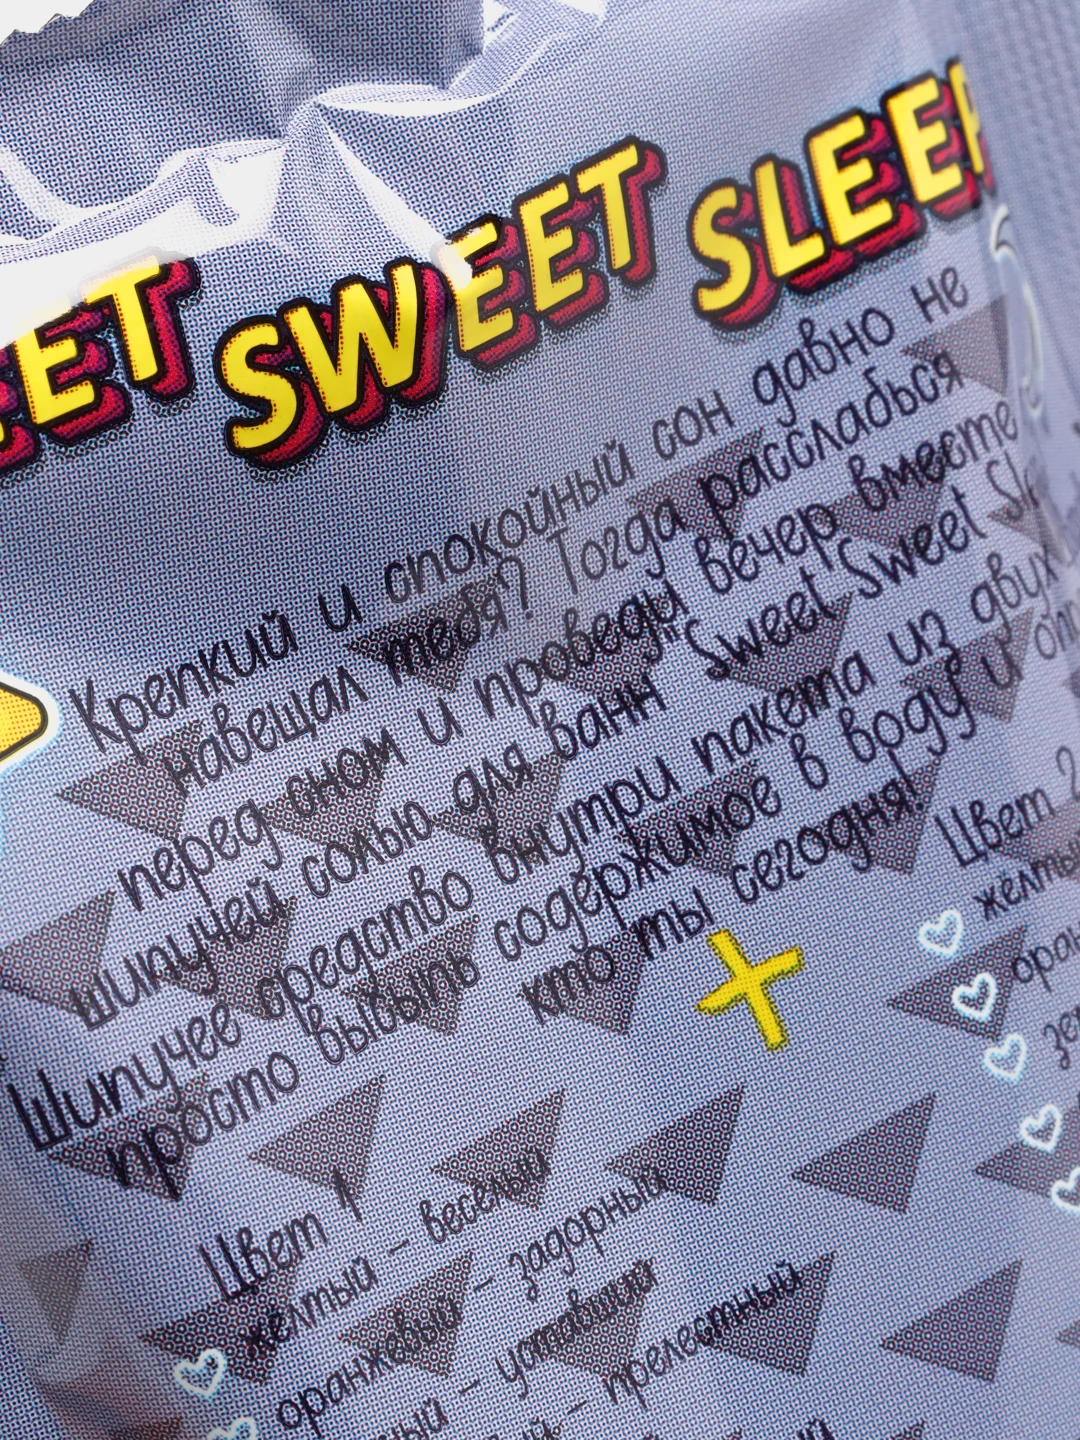 SWEET SLEEP
Крепкий и спокойный сон давно не
навещал тебя? Тогда расслабься
перед сном и проведи вечер вместе
шипучей солью для ванн "Sweet Sweet
Шипучее средство внутри пакета из двух
просто высыпь содержимое в воду и
кто ты сегодня!
+
Цвет 1
жёлтый – весёлый
оранжевый – задорный
– уставший
– прелестный
Цвет 2